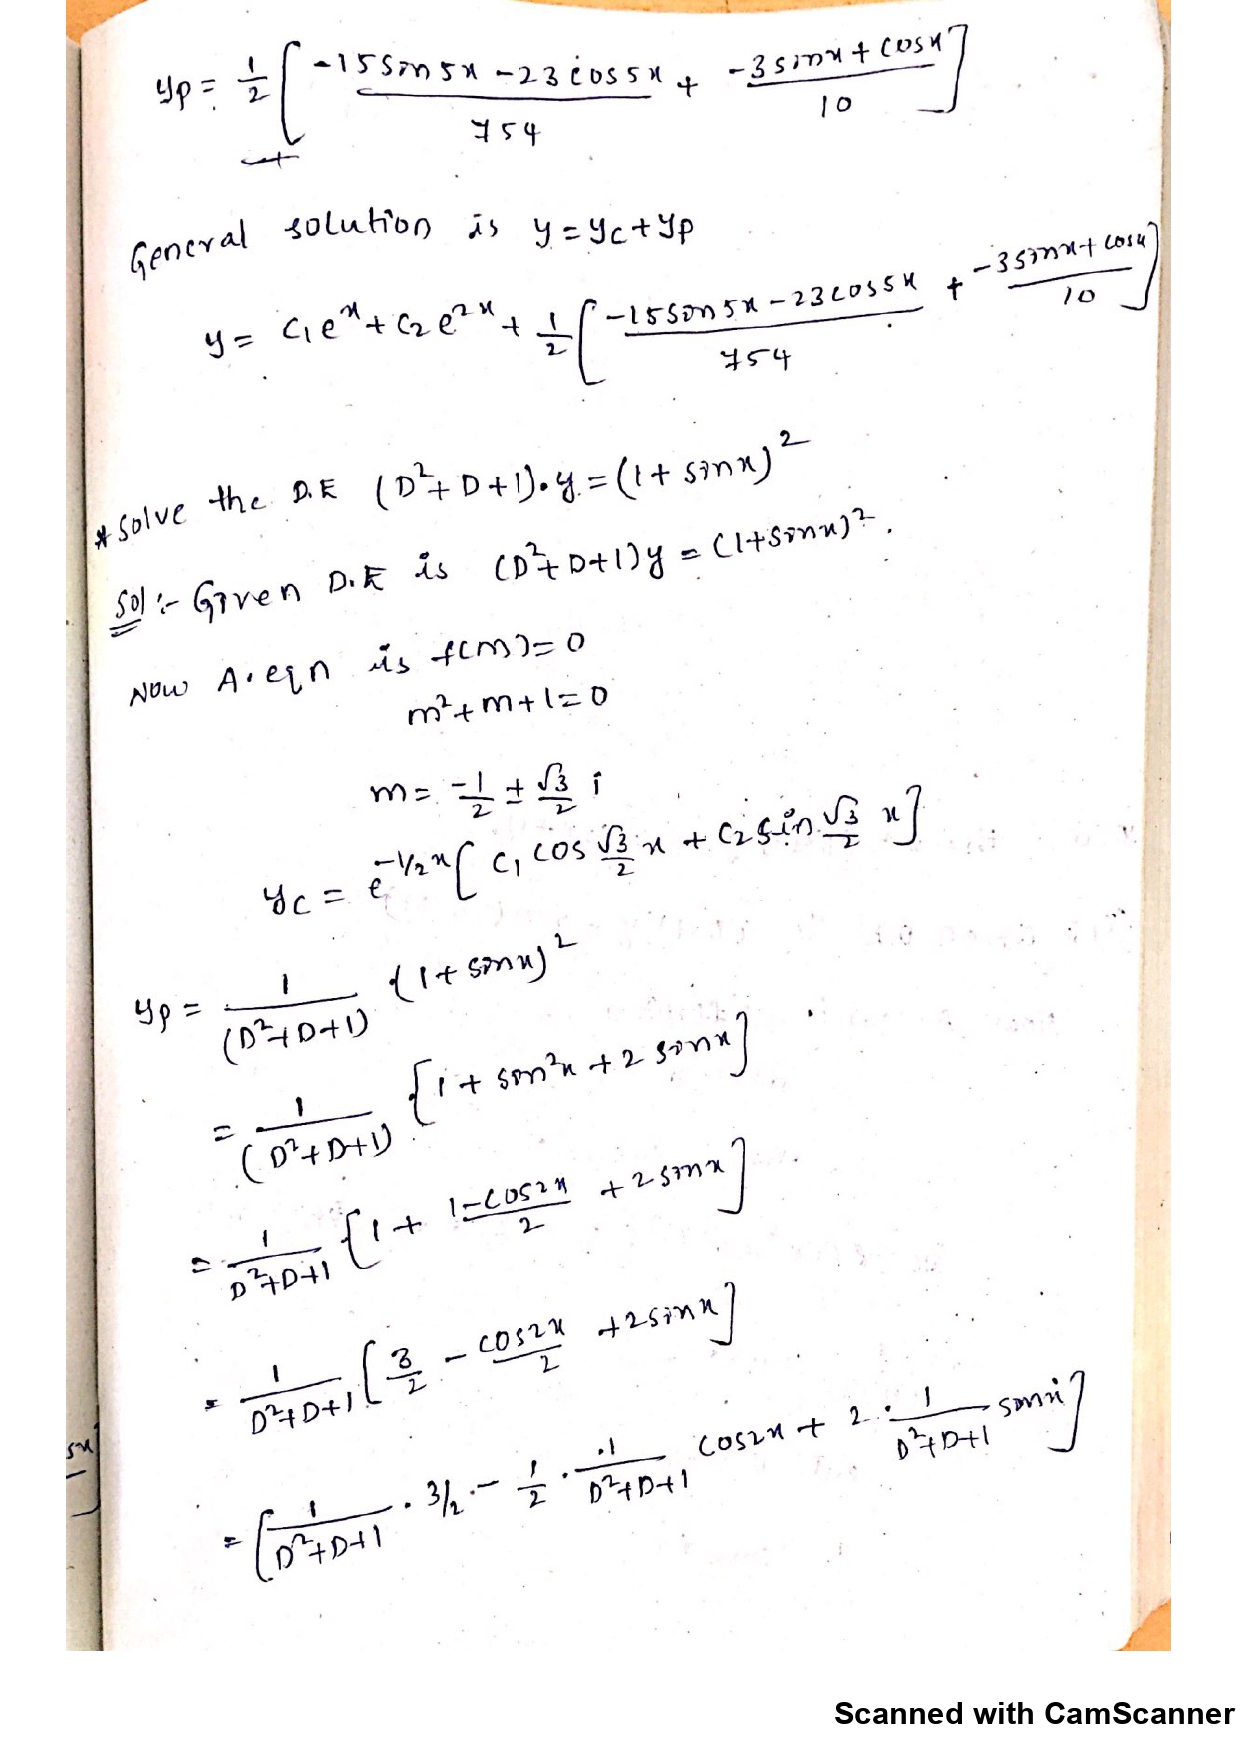 yp = 1/2 [ (-15 sin5x - 23 cos5x)/754 + (-3 sinx + cosx)/10 ]
General solution is y = yc + yp
y = c1 e^x + c2 e^2x + 1/2 [ (-15 sin5x - 23 cos5x)/754 + (-3 sinx + cosx)/10 ]
* Solve the D.E (D²+D+1).y = (1+ sinx)²
Sol :- Given D.E is (D²+D+1)y = (1+sinx)².
Now A.eqn is f(m)=0
m²+m+1=0
m = -1/2 ± √3/2 i
yc = e^-1/2x [ c1 cos √3/2 x + c2 sin √3/2 x ]
yp = 1/(D²+D+1) (1+ sinx)²
= 1/(D²+D+1) [1+ sin²x + 2 sinx]
= 1/D²+D+1 [1 + (1-cos2x)/2 + 2 sinx]
= 1/D²+D+1 [3/2 - cos2x/2 + 2sinx]
= [1/D²+D+1 . 3/2 - 1/2 . 1/D²+D+1 cos2x + 2 . 1/D²+D+1 sinx]
5x
Scanned with CamScanner